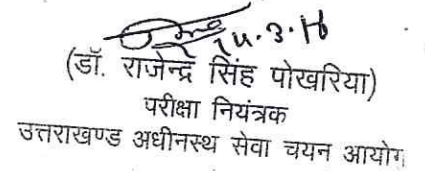 14.3.16
(डॉ. राजेन्द्र सिंह पोखरिया)
परीक्षा नियंत्रक
उत्तराखण्ड अधीनस्थ सेवा चयन आयोग